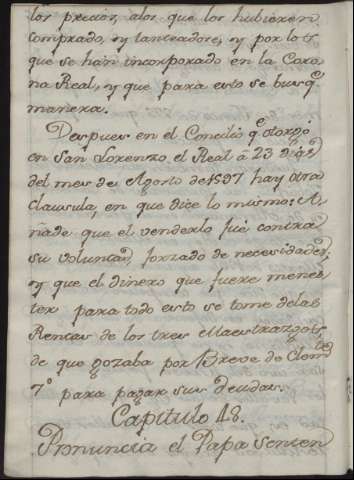 los precios, a los que los hubieren
comprado, y tanteadore, y por lo q̃
que se han incorporado en la Coro
na Real, y que para esto se busq̃
manera.
Despues en el Concilio q̃ otorgó
en San Lorenzo el Real á 23 dias
del mes de Agosto de 1597 hay otra
Clausula, en que dice lo mismo: A-
ñade que el venderlo fué contra
su voluntad, forzado de necesidades;
y que el dinero que fuere menes
ter para todo esto se tome de las
Rentas de los tres Maestrazgos
de que gozaba por Breve de Clemte
7º para pagar sus deudas.
Capitulo 18.
Pronuncia el Papa Senten